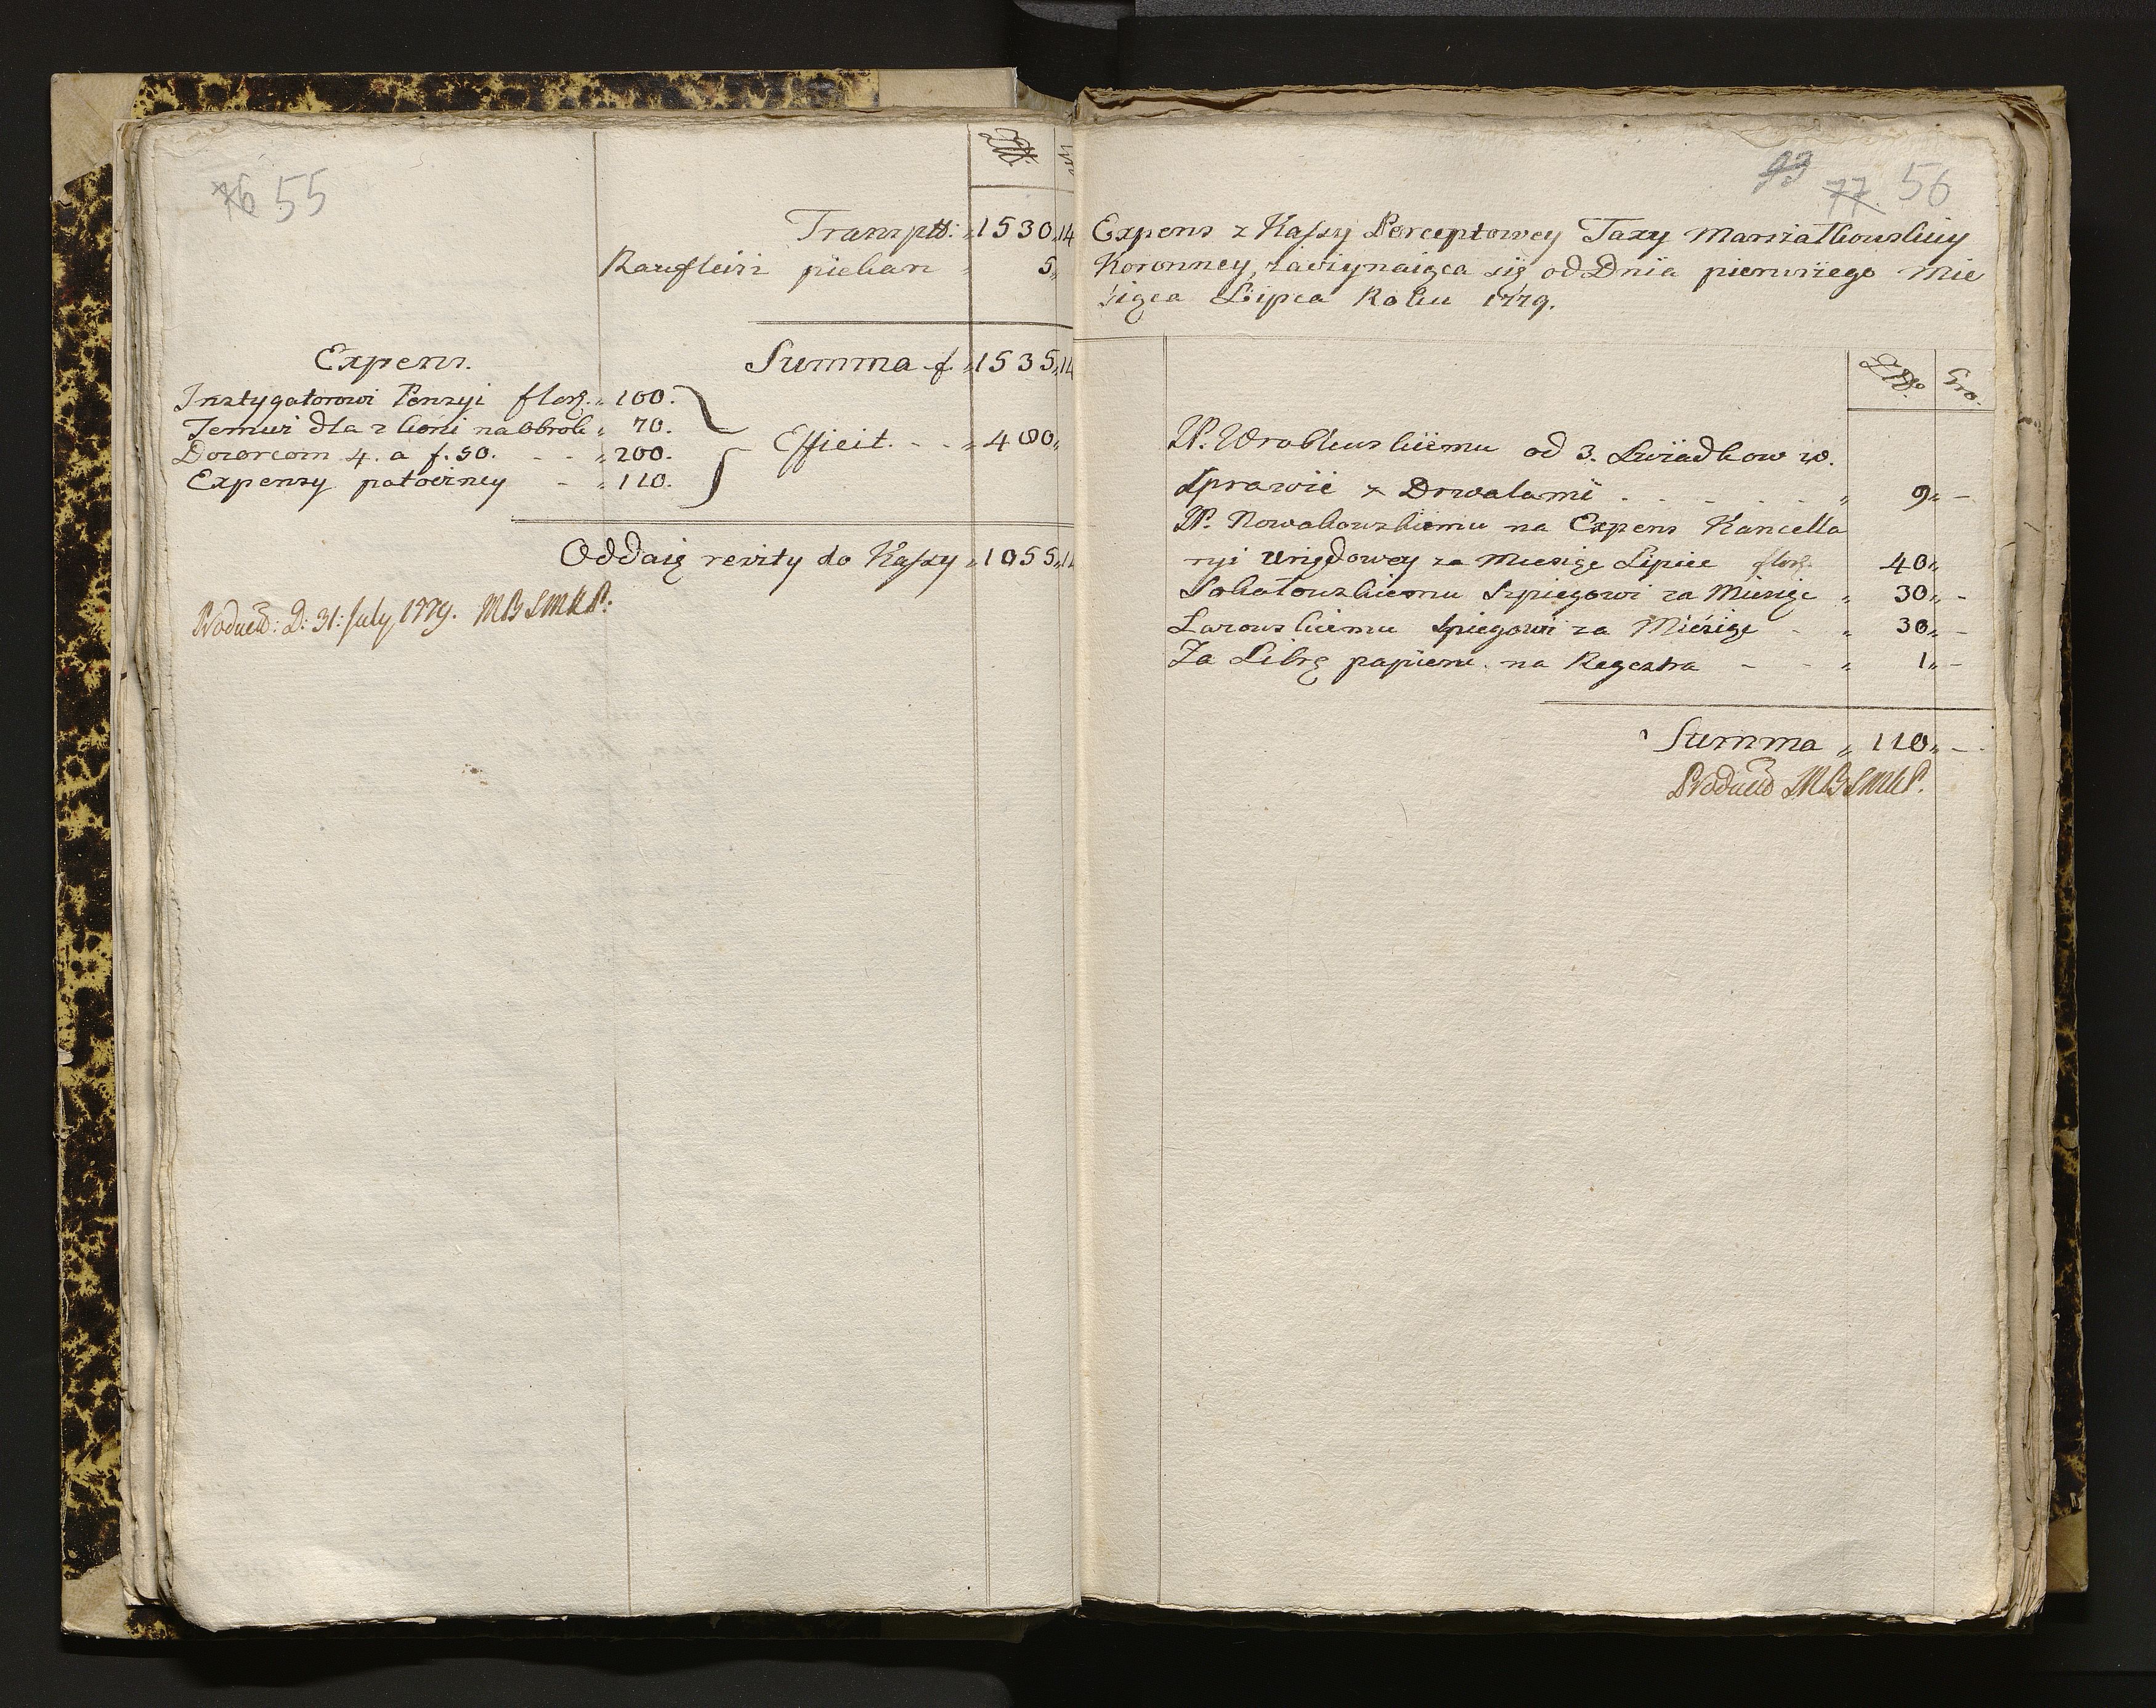 76 55
Złt.
Transptt: „ 1530 „ 14
Raufleisz piekarz „ 5 „
Summa f. „ 1535 „ 14
Expens.
Instygatorowi Pensyi flor. „ 100.
Temuż dla 2 koni na obrok „ 70.
Dozorcom 4. a f. 50. - - „ 200.
Expensy potoczney - „ 110.
Efficit. - - „ 480 „
Oddaię reszty do Kassy „ 1055 „ 14
D: 31: July 1779. MBSMKP:
93 77 56
Expens z Kassy Perceptowey Taxy Marszałkowskiey
Koronney, zaczynaiąca się od Dnia pierwszego Mie
siąca Lipca Roku 1779.
Złt. Gro.
JP. Wroblewskiemu od 3. Swiadkow w.
Sprawie z Drwalami . . . . . „ 9 „ -
JP. Nowakowskiemu na Expens Kancella
ryi Urzędowey za Miesiąc Lipiec flor. 40 „
Sobotowskiemu Szpiegowi za Miesiąc „ 30 „ -
Lazowskiemu Spiegowi za Miesiąc - „ 30 „ -
Za Librę papieru na Regestra - - „ 1 „ -
Summa „ 110 „ -
MBSMKP.